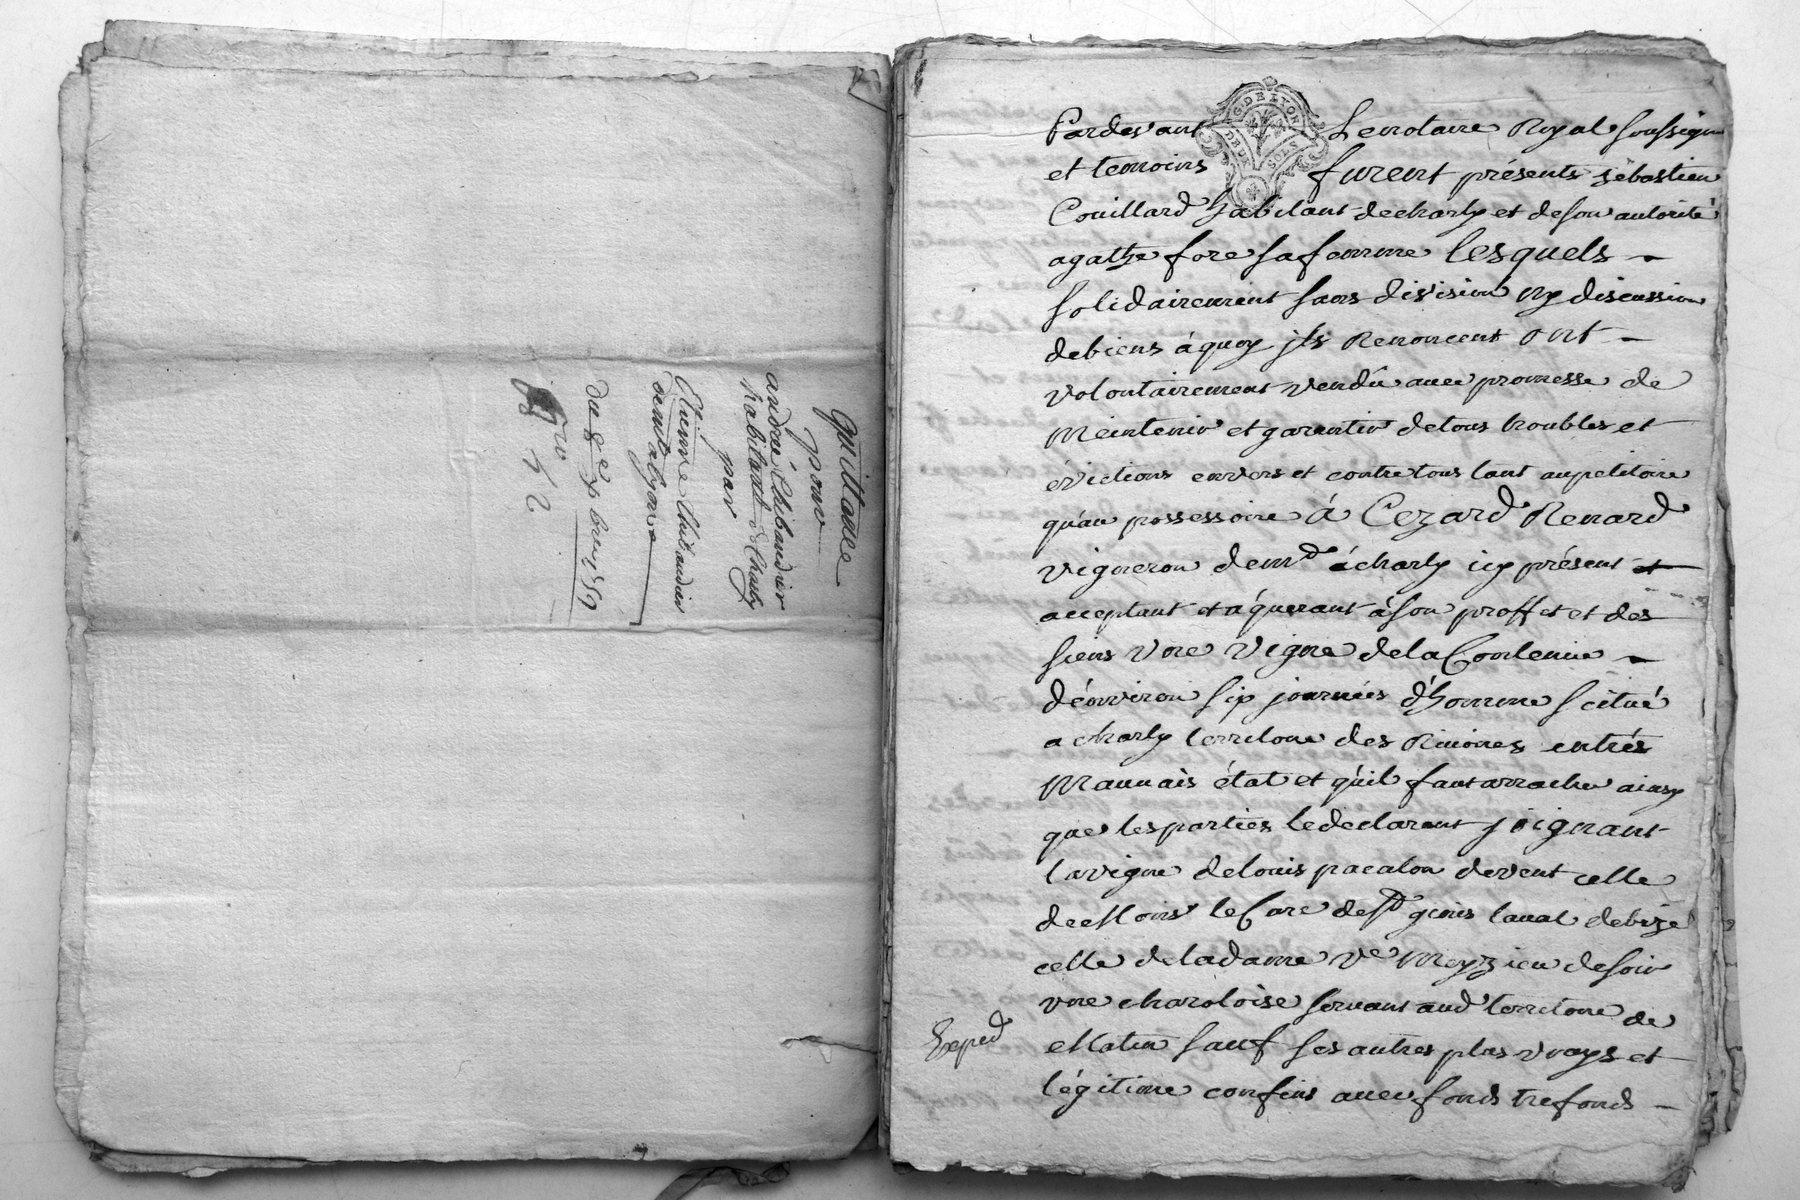 quittance
pour
andré Chibaudier
habitant de Charly
par
Etienne Chibaudier
demt a lyon
du 8e xbre 1759
G. DE LYON
DEUX SOLS
Pardevant Le notaire Royal soussigné
et temoins furent présents sébastien
Couillard habitant decharly et deson autorité
agathe fore safemme lesquels
solidairement sans division ny discussion
debiens áquoy jls Renoncent ont
volontairement vendû avec promesse de
Meintenir et garentir detous troubles et
évictions envers et contre tous tant aupetitoire
qu'au possessoire á Cezard Renard
vigneron demt ácharly icy présent et
acceptant et áquerant áson proffit et des
siens vne vigne dela Contenue
dénviron six journées d'homme scitué
a charly territoire des entrés
Mauvais état et quil faut arracher ainsy
que les parties ledeclarent joignant
la vigne delouis pacalon devent celle
de le Curé de St genis laval debize
celle deladame Ve Meyzieu desoir
vne charoloise servant aud territoire de
Matin sauf ses autres plus vrays et
légitime confins avec fonds trefonds
Exped